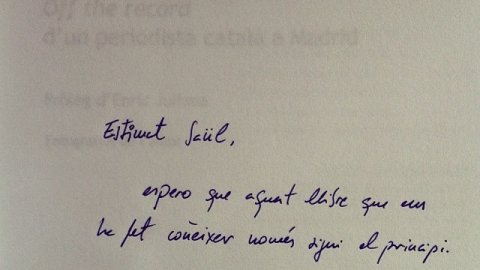 Off the record
d'un periodista català a Madrid
Pròleg d'Enric Juliana
Estimat Saül,
espero que aquest llibre que ens
ha fet conèixer només sigui el principi.